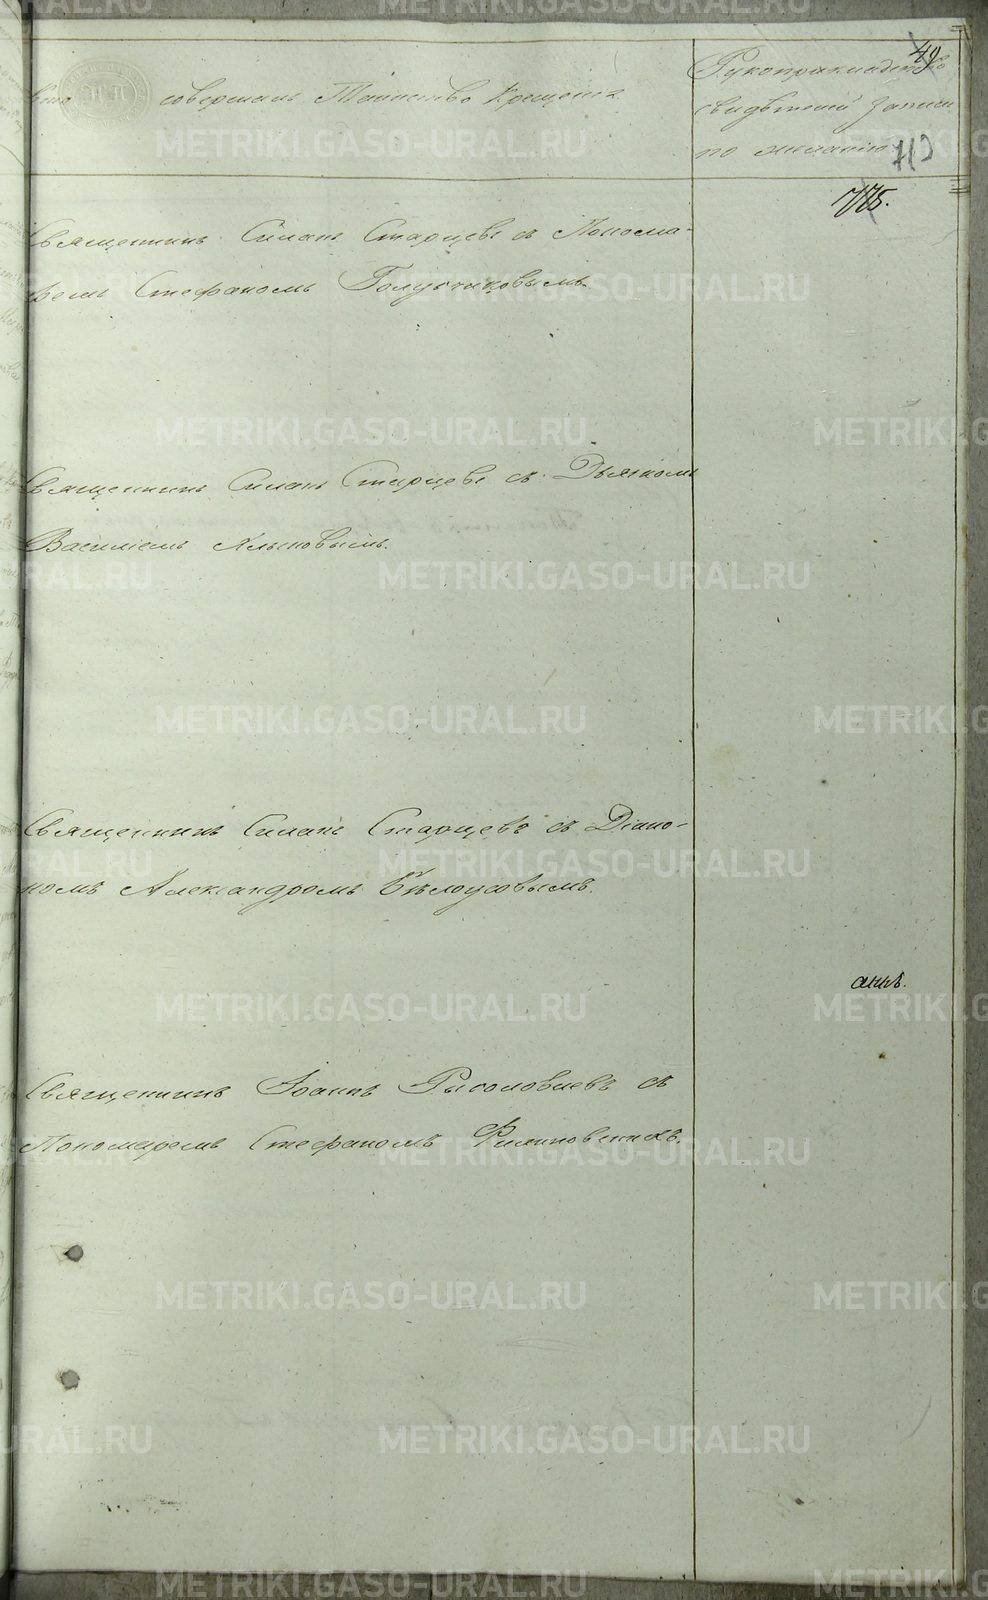 49
Кто совершалъ Таинство Крещенія
Рукоприкладство
свидѣтелей записи
по желанію
713
775.
Священникъ Силанъ Старцевъ съ Понома-
ремъ Стефаномъ Голубчиковымъ.
Священникъ Силанъ Старцевъ съ Дьячкомъ
Василіемъ Хлыновымъ.
Священникъ Силанъ Старцевъ съ Діако-
номъ Александромъ Бѣлоусовымъ.
Священникъ Іоаннъ съ
Пономаремъ Стефаномъ
METRIKI.GASO-URAL.RU